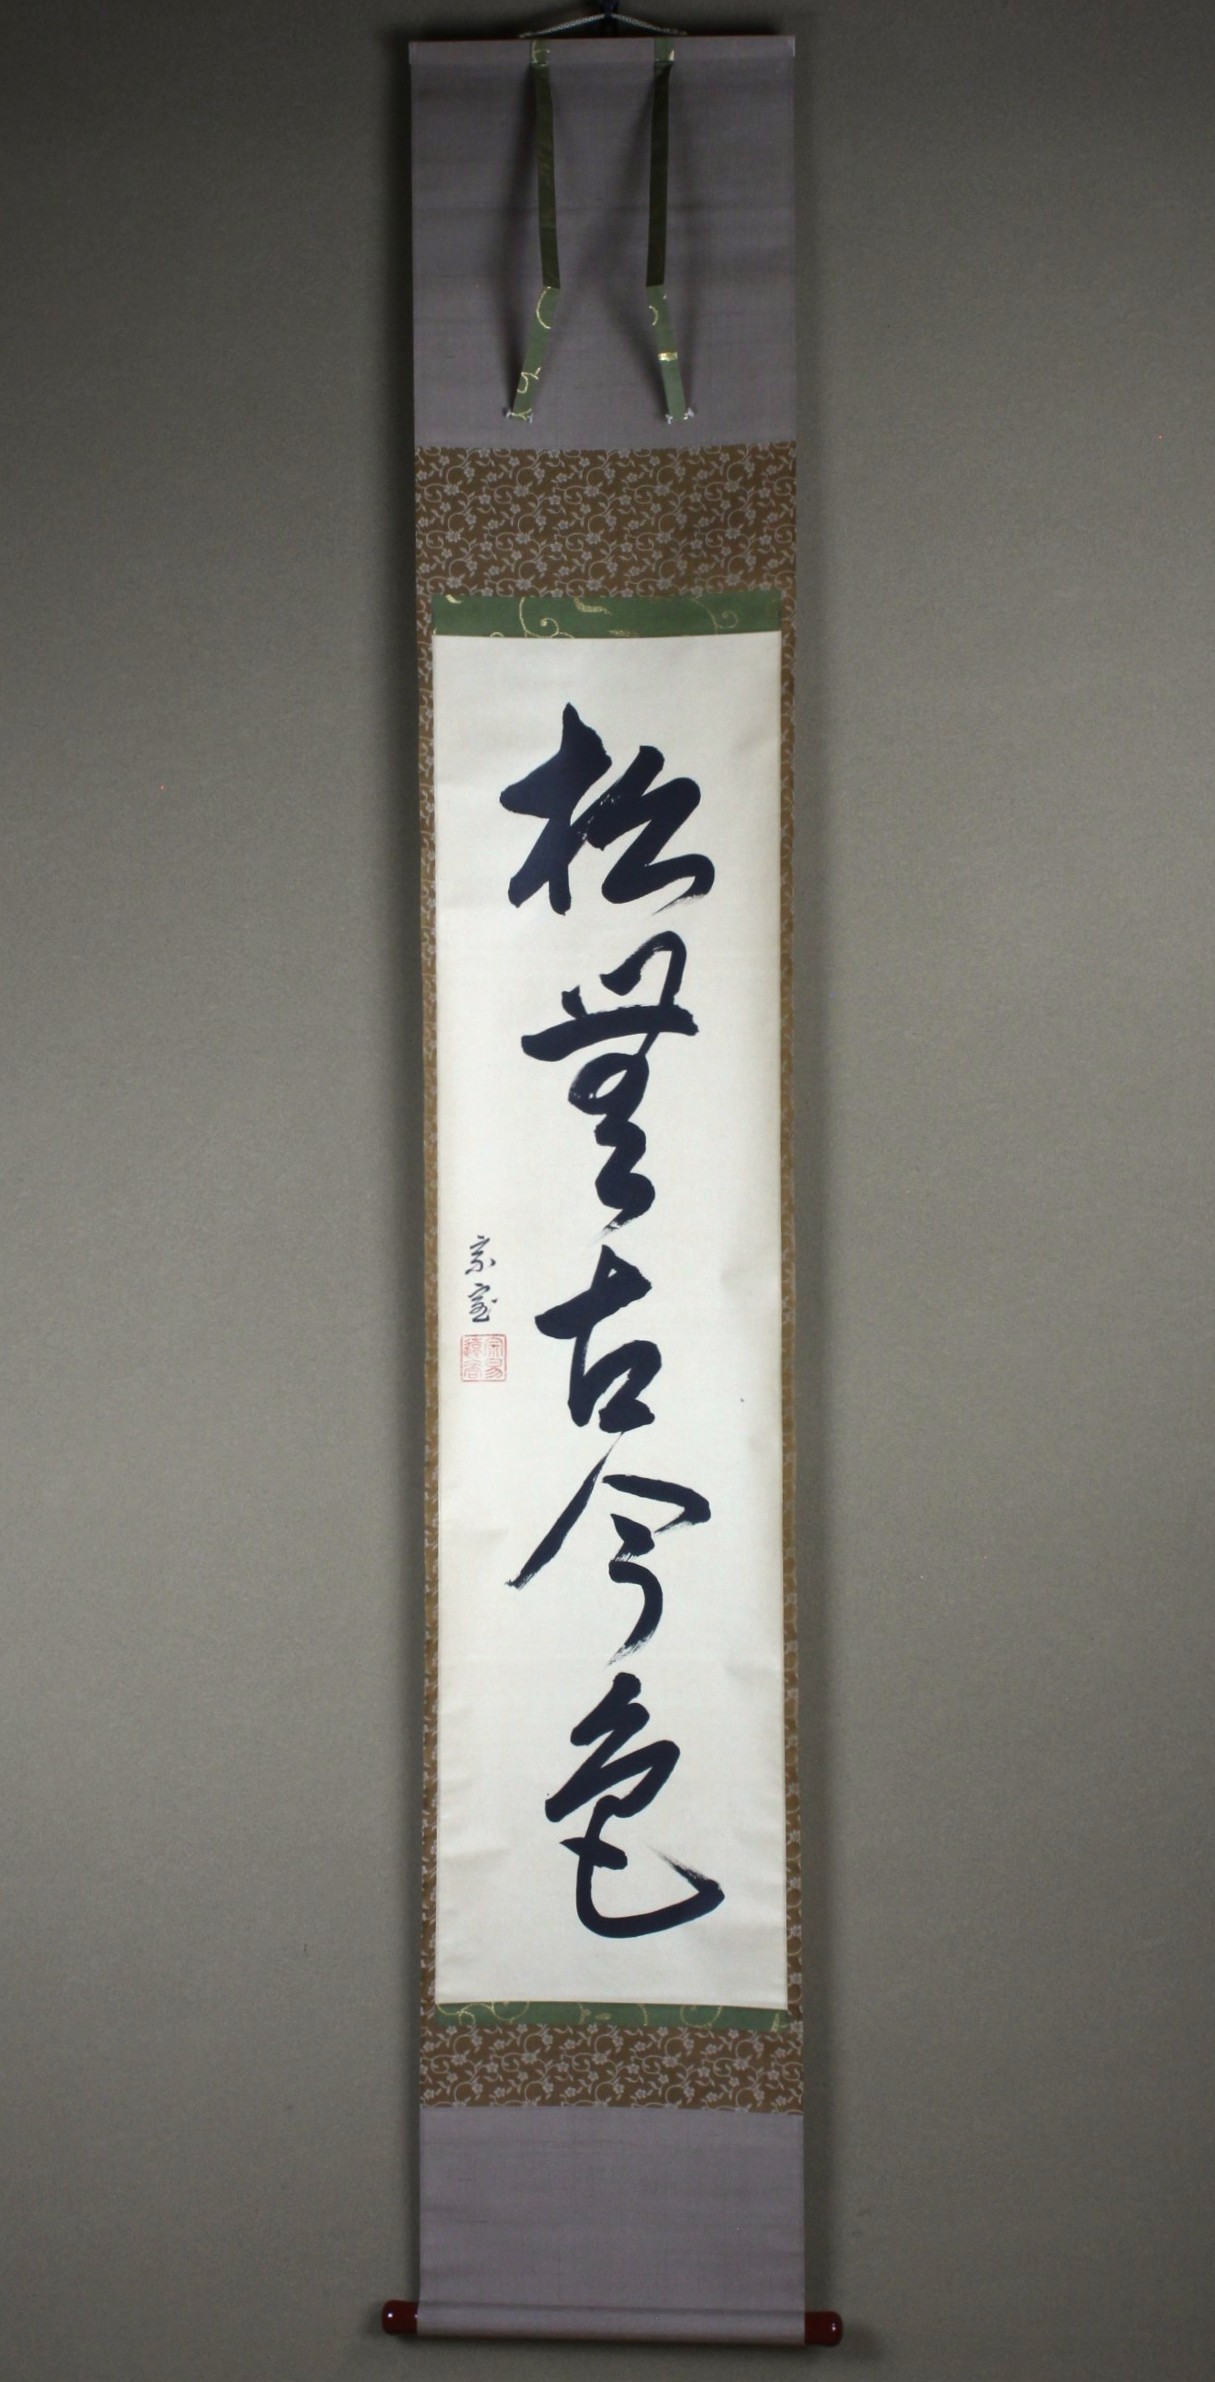 松無古今色
宗室